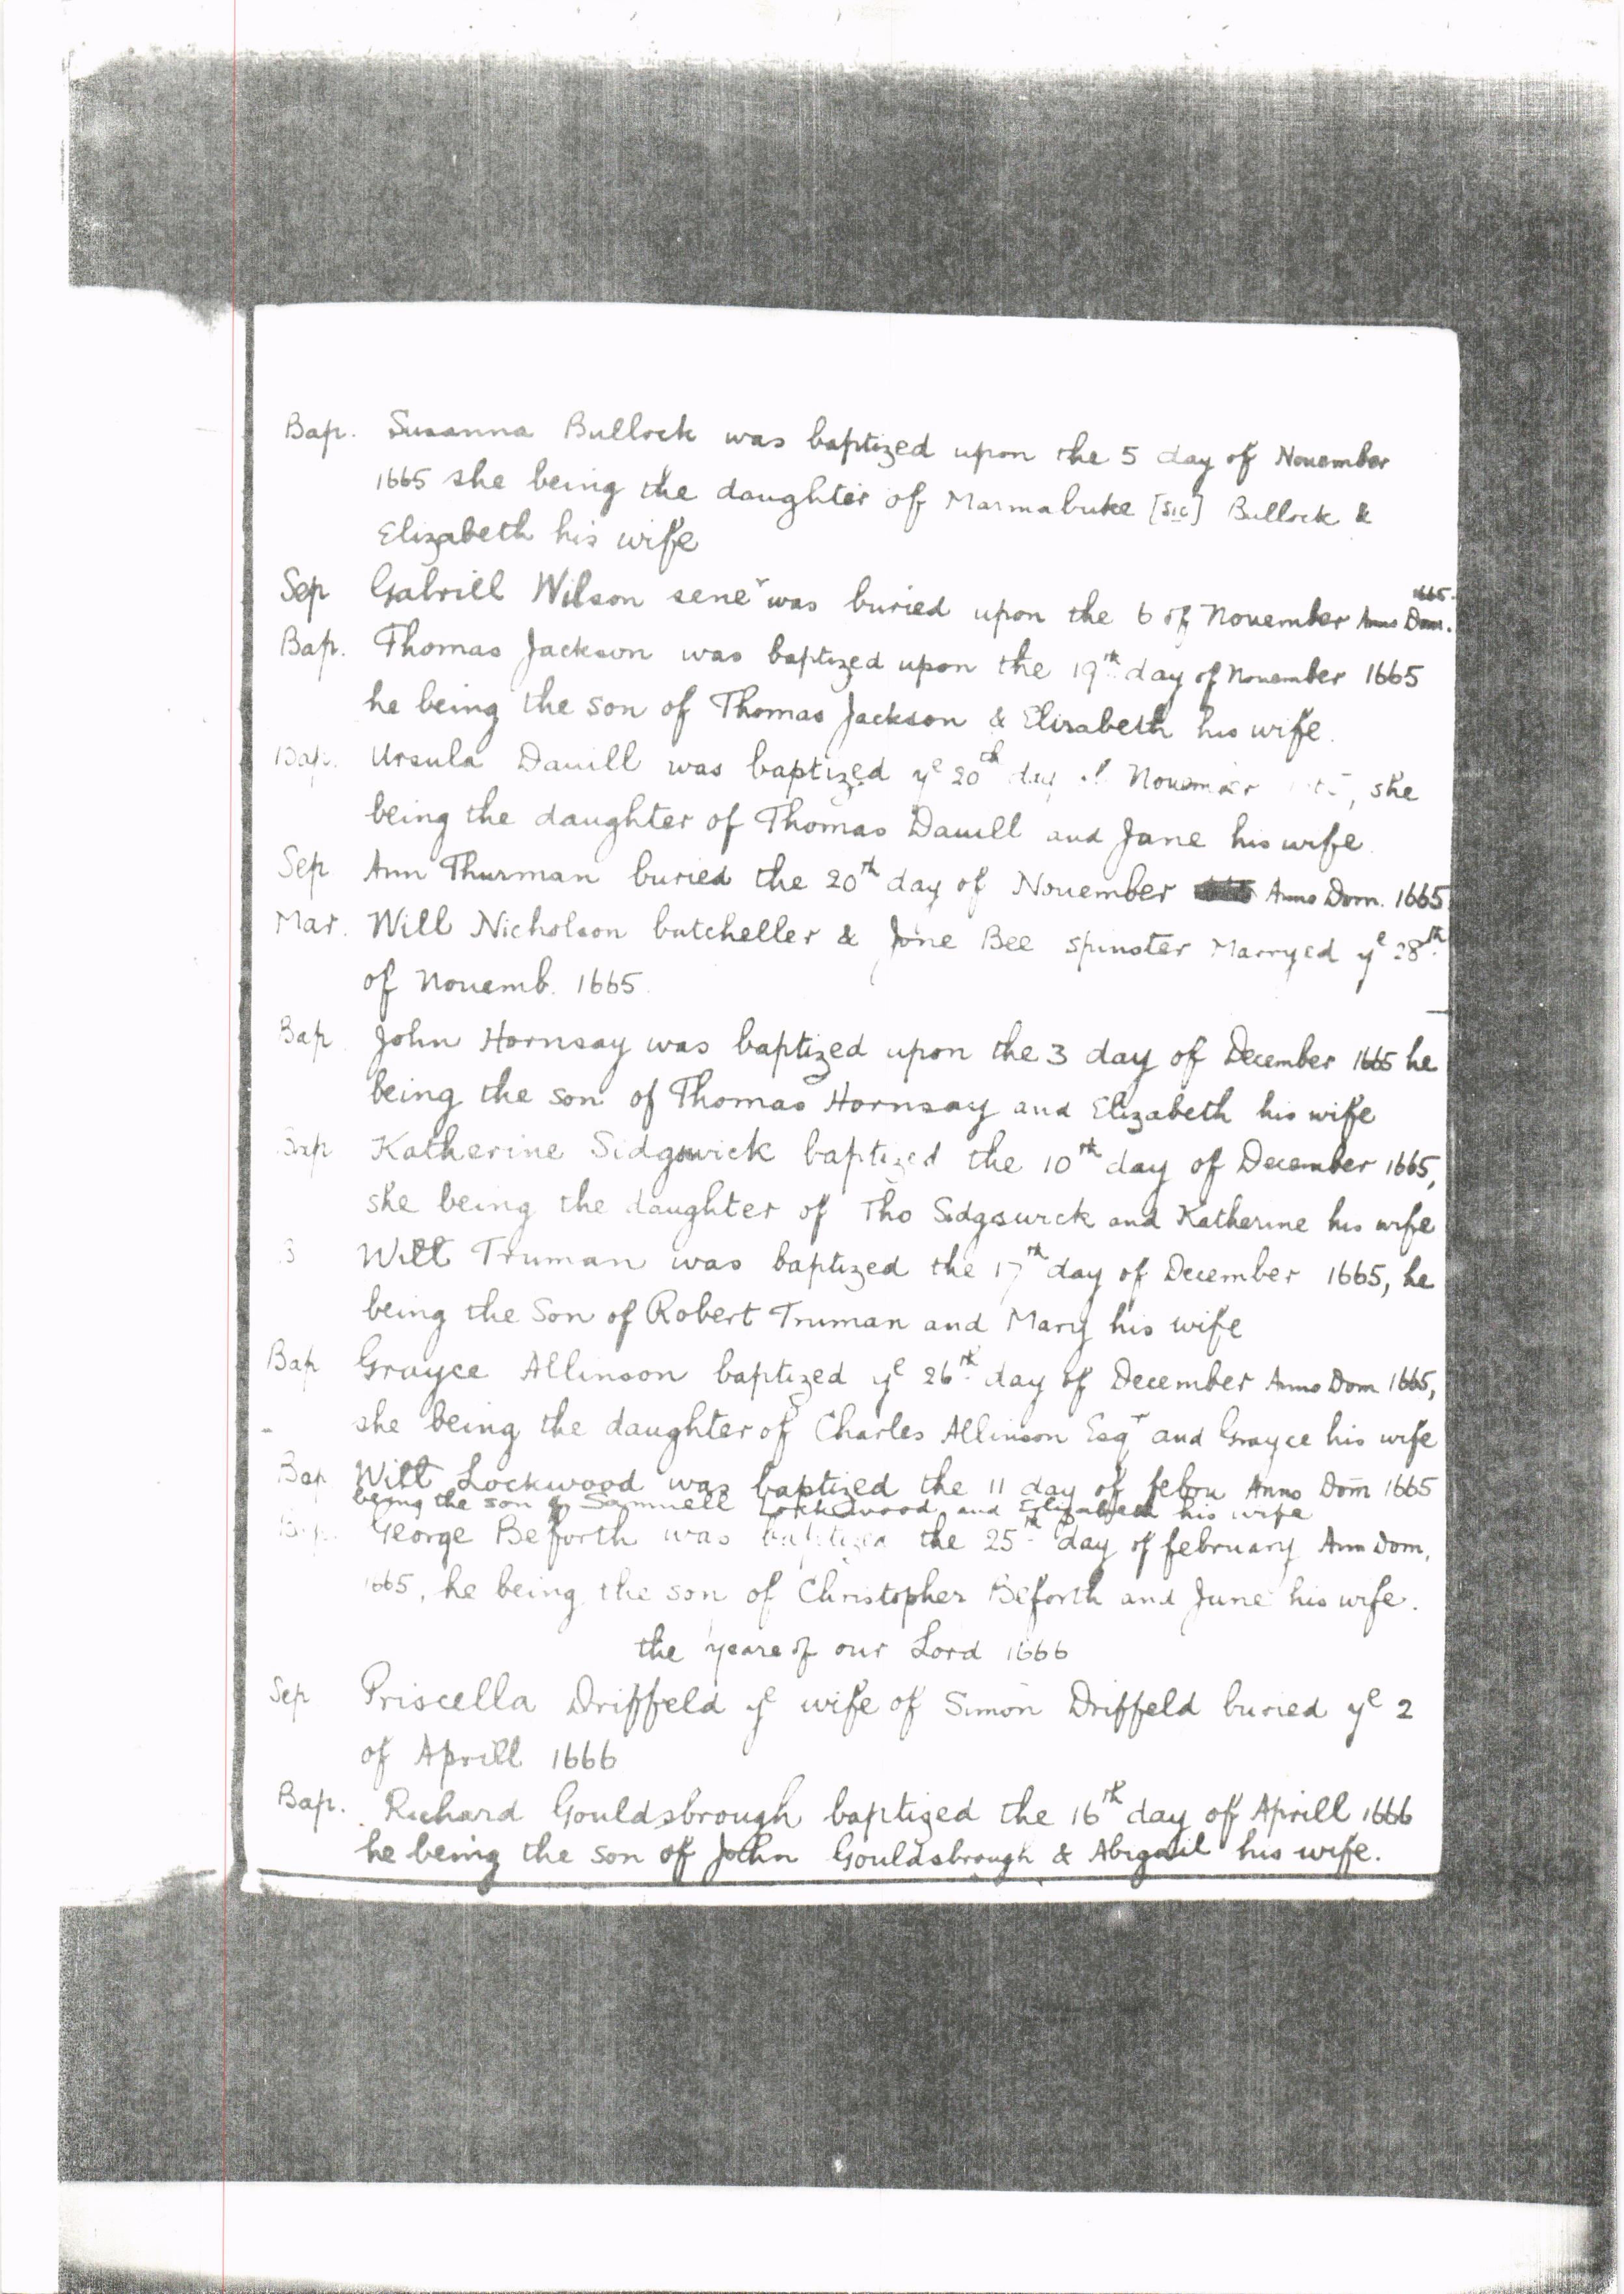 Bap. Susanna Bullock was baptized upon the 5 day of November
1665 she being the daughter of Marmabuke [sic] Bullock &
Elizabeth his wife
Sep Gabrill Wilson sener was buried upon the 6 of November Anno Dom. 1665.
Bap. Thomas Jackson was baptized upon the 19th day of November 1665
he being the son of Thomas Jackson & Elizabeth his wife.
Bap. Ursula Dauill was baptized ye 20th day of November she
being the daughter of Thomas Dauill and Jane his wife.
Sep Ann Thurman buried the 20th day of November Anno Dom. 1665
Mar. Will Nicholson butcheller & Jone Bee spinster Marryed ye 28th
of Nouemb. 1665
Bap John Hornsay was baptized upon the 3 day of December 1665 he
being the son of Thomas Hornsay and Elizabeth his wife
Bap Katherine Sidgswick baptized the 10th day of December 1665,
she being the daughter of Tho Sidgswick and Katherine his wife
Will Truman was baptized the 17th day of December 1665, he
being the Son of Robert Truman and Mary his wife
Bap Grayce Allinson baptized ye 26th day of December Anno Dom 1665,
she being the daughter of Charles Allinson Esqr and Grayce his wife
Bap Will Lockwood was baptized the 11 day of febru Anno Dom 1665
being the son of Samuell Lockwood and Elizabeth his wife
Bap. George Beforth was baptized the 25th day of february Ann Dom,
1665, he being the son of Christopher Beforth and June his wife.
the yeare of our Lord 1666
Sep Priscella Driffeld ye wife of Simon Driffeld buried ye 2
of Aprill 1666
Bap. Richard Gouldsbrough baptized the 16th day of Aprill 1666
he being the son of John Gouldsbrough & Abigail his wife.